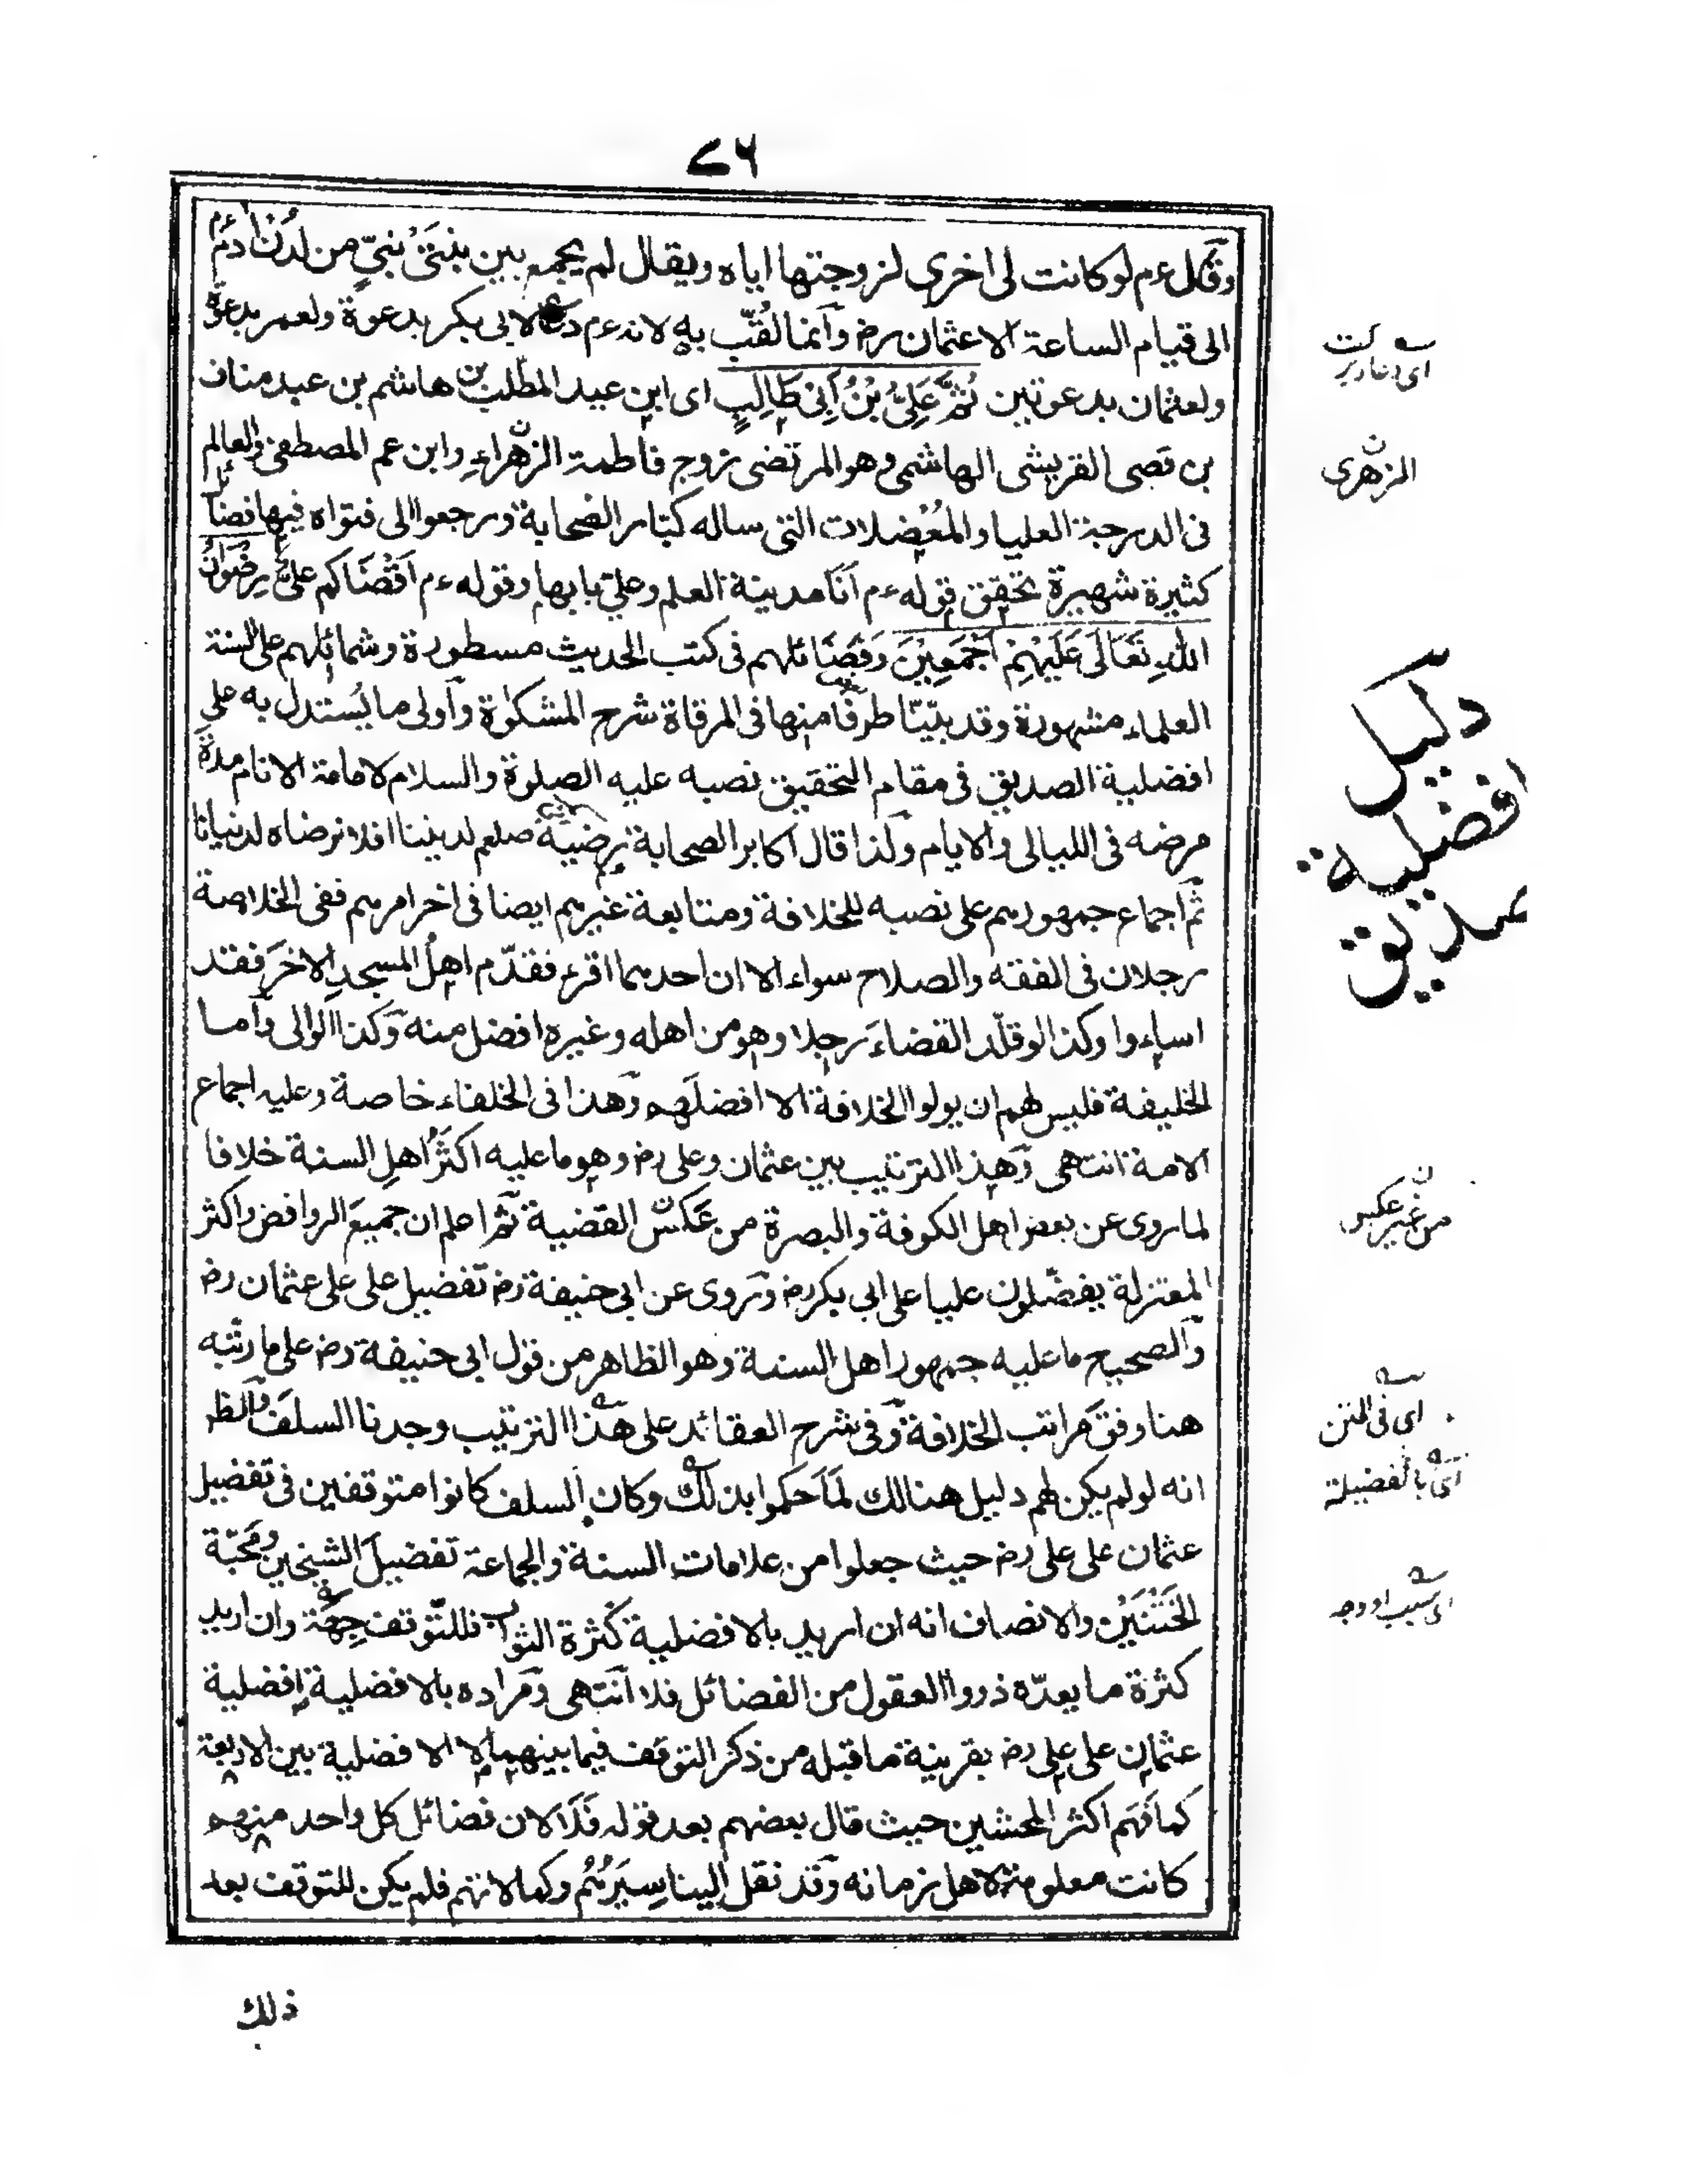 ٧٦
وقال ءم لو كانت لى اخرى لزوجتها اياه ويقال لم يجمع بين بنتَىْ نبىٍّ من لدُنْ ادم ءم
الى قيام الساعة الا عثمان رض وانما لُقّب به لانه ءم دعا لابى بكر بدعوة ولعمر بدعوة
ولعثمان بدعوتين ثُمَّ عَلِىُّ بْنُ اَبِىْ طَالِبٍ اى ابن عبد المطّلب بن هاشم بن عبد مناف
بن قصى القريشى الهاشمى وهو المرتضى زوج فاطمة الزهراء وابن عم المصطفى والعالم
فى الدرجة العليا والمُعْضلات التى ساله كبّار الصحابة ورجعوا الى فتواه فيها فضائل
كثيرة شهيرة تحقق قوله ءم اَنَا مدينة العلم وعلىّ بابها وقوله ءم اَقْضَاكم علىّ رِضْوَانُ
اللهِ تَعَالَى عَلَيْهِمْ اَجْمَعِيْنَ وَفَضَائلهم فى كتب الحديث مسطورة وشمائلهم على السنة
العلماء مشهورة وقد بيّنّا طرفًا منها فى المرقاة شرح المشكوٰة وأولى ما يُستدل به على
افضلية الصديق فى مقام التحقيق نصبه عليه الصلوة والسلام لامامة الانام مدة
مرضه فى الليالى والايام ولذا قال اكابر الصحابة رضيه صلعم لديننا افلا نرضاه لدنيانا
ثم اجماع جمهورهم على نصبه للخلافة ومتابعة غيرهم ايضا فى اخر امرهم ففى الخلاصة
رجلان فى الفقه والصلاح سواء الا ان احدهما اقرء فقدّم اهلُ المسجدِ الاخرَ فقد
اساءوا وكذا لو قلّد القضاءَ رجلا وهو من اهله وغيره افضل منه وكذا الوالى وأما
الخليفة فليس لهم ان يولوا الخلافة الا افضلَهم وهذا فى الخلفاء خاصة وعليه اجماع
الامة انتهى وهذا الترتيب بين عثمان وعلى رض وهو ما عليه اكثَرُ اهلِ السنة خلافا
لما روى عن بعض اهل الكوفة والبصرة من عَكسِ القضية ثم اعلم ان جميعَ الروافض واكثر
المعتزلة يفضّلون عليا على ابى بكر رض وروى عن ابى حنيفة رض تفضيل على على عثمان رض
والصحيح ما عليه جمهور اهل السنة وهو الظاهر من قول ابى حنيفة رض على ما رتّبه
هنا وفق مراتب الخلافة وفى شرح العقائد على هذا الترتيب وجدنا السلفَ والظ
انه لو لم يكن لهم دليل هنالك لَمَا حكموا بذلك وكان السلف كانوا متوقفين فى تفضيل
عثمان على على رض حيث جعلوا من علامات السنة والجماعة تفضيلَ الشيخين ومحبّة
الخَتَنَيْن والانصاف انه ان اريد بالافضلية كَثرة الثواب فللتّوقف جِهَة وان اريد
كثرة ما يعدّه ذووا العقول من الفضائل فلا انتهى ومراده بالافضلية افضلية
عثمان على على رض بقرينة ما قبله من ذكر التوقف فيما بينهما لا الافضلية بين الاربعة
كما فهم اكثر المحشين حيث قال بعضهم بعد قوله فَلَا لان فضائل كل واحد منهم
كانت معلومة لاهل زمانه وقد نقل الينا سِيَرُهُم وكمالاتهم فلم يكن للتوقف بعد
ذلك
الزهرى
دليل
افضلية
صديق
من غير عكس
اى فى المتن
اى بالفضيلة
اى سبب او وجه